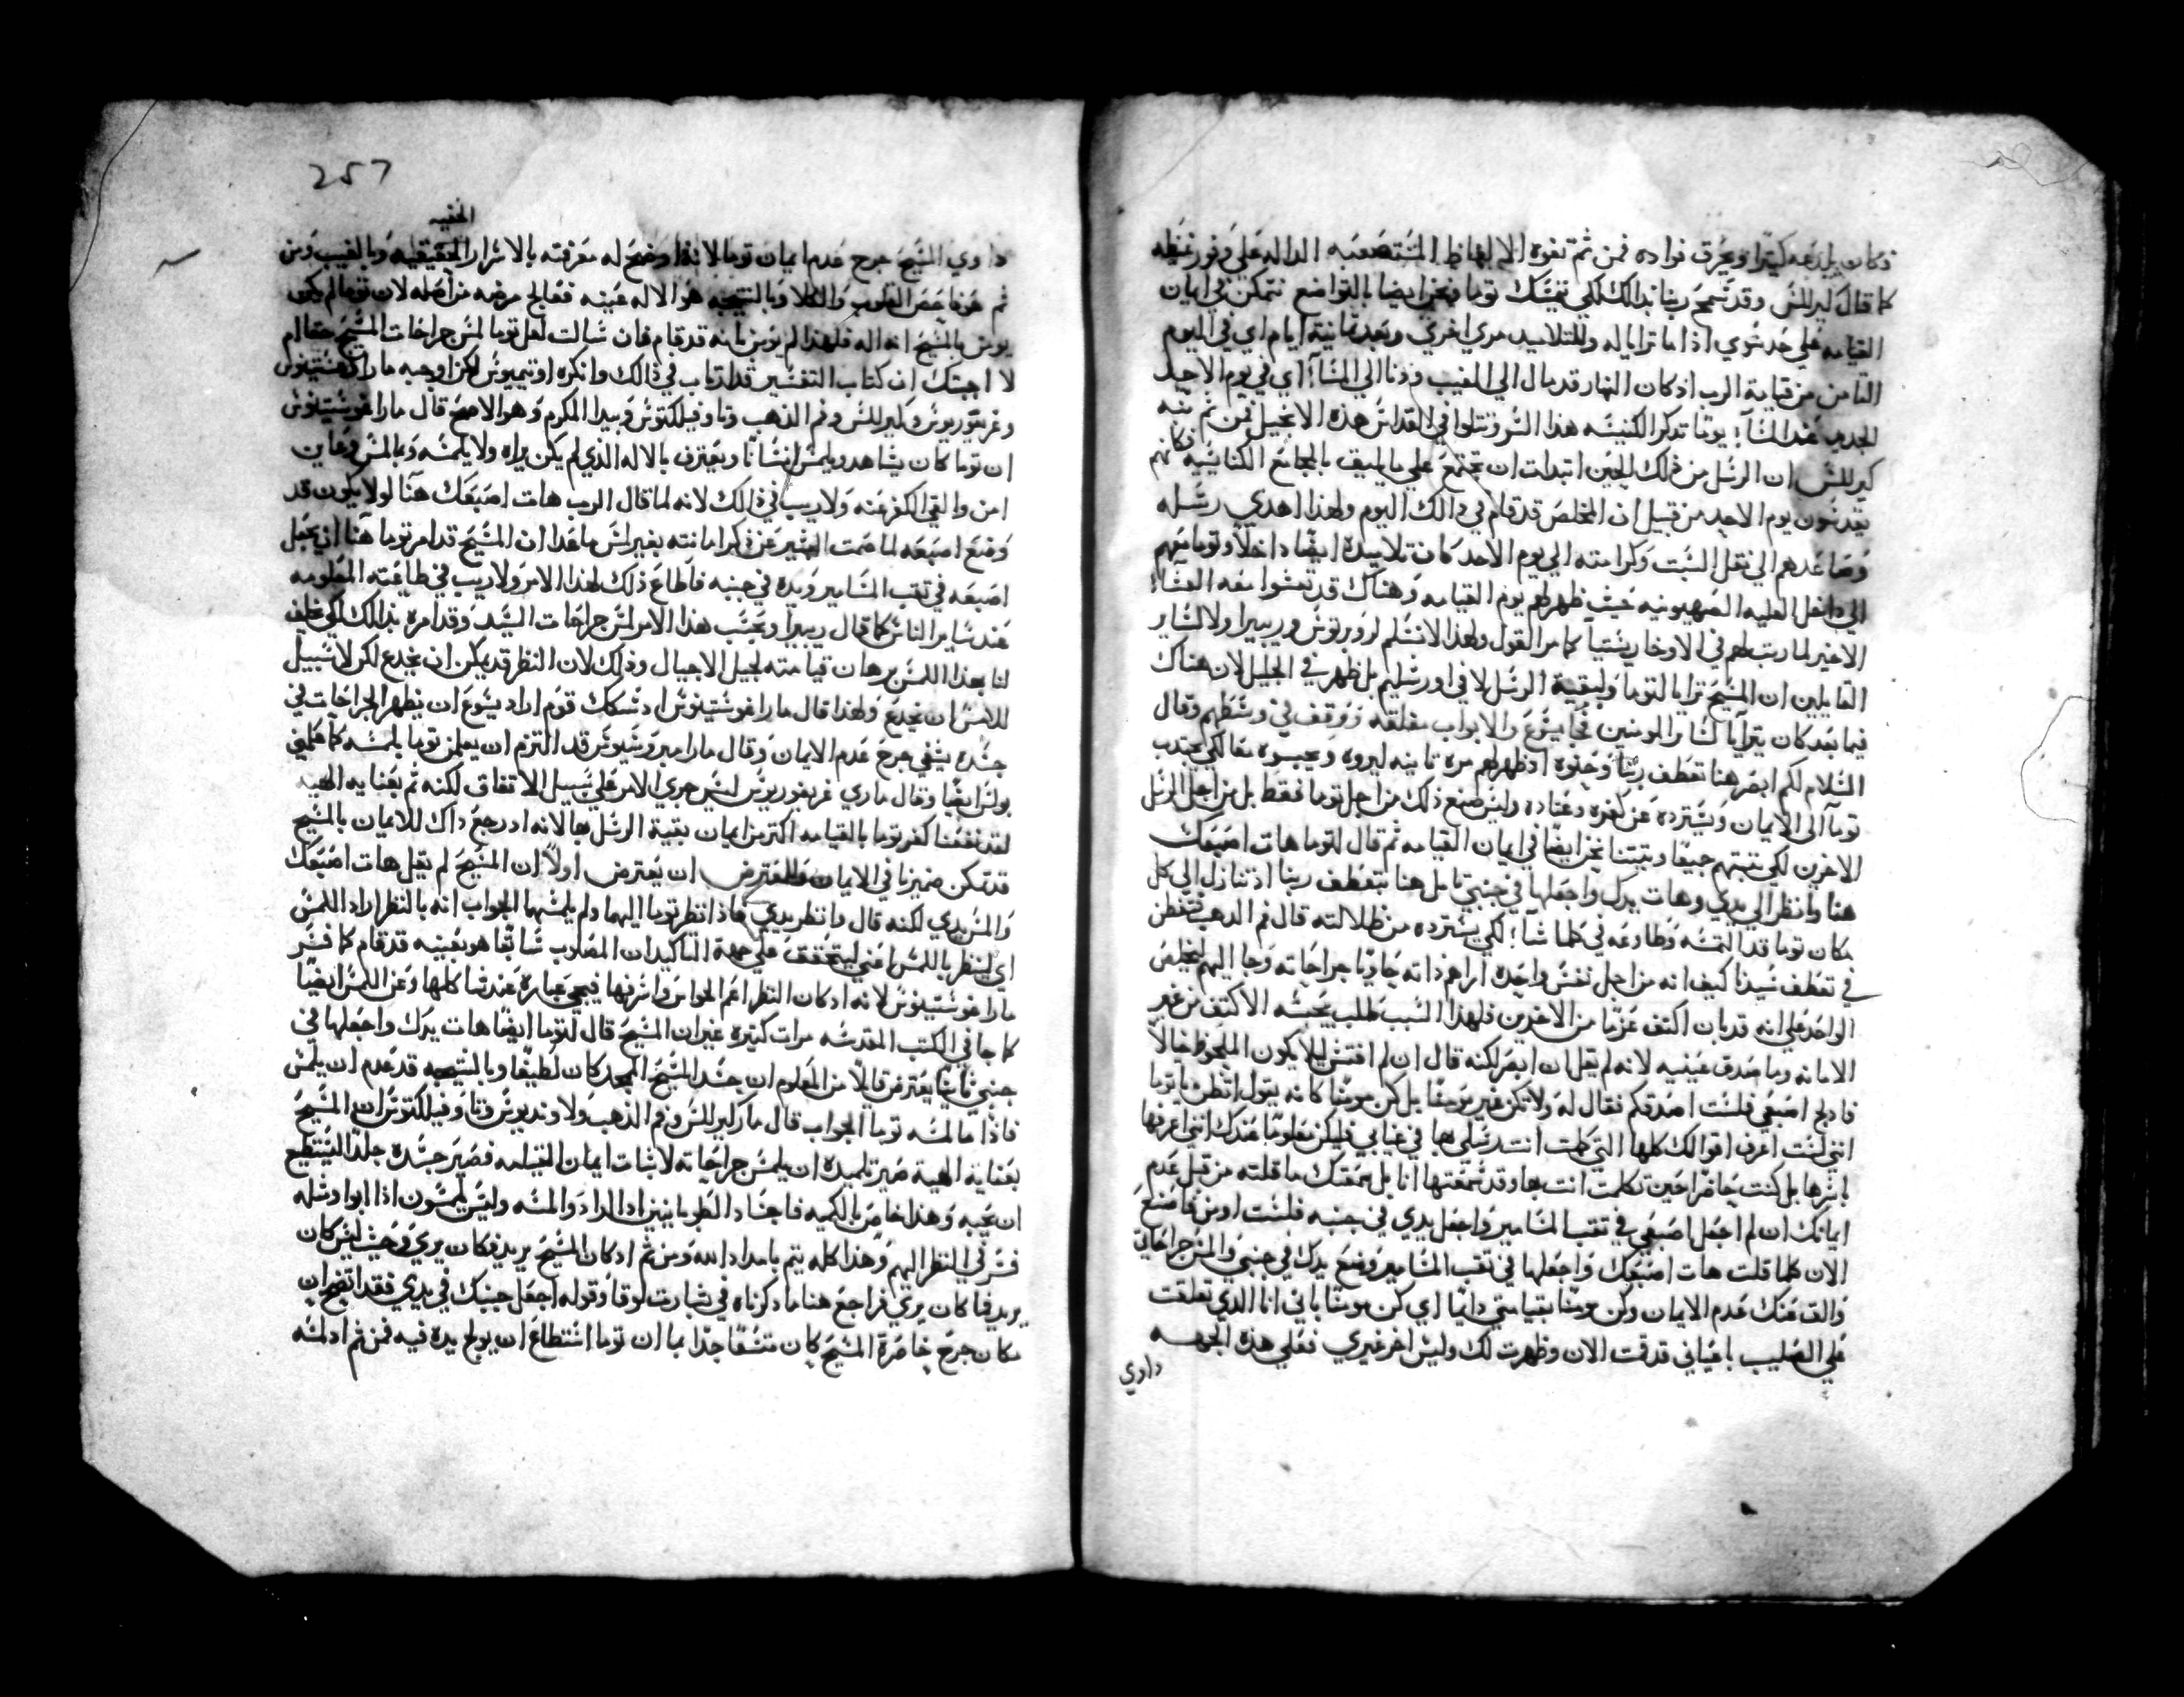 وكان يلدعه كثيرًا ويحرق فواده فمن ثم تفوه الالفاظ المستصعبه الداله على وفور غيظه
كما قال كيرللس وقد سمح ربنا بدالك لكي نفسك توما ونحن ايضا بالتواضع نتمكن في ايمان
القيامه على حد سوي اذا ما ترايا له وللتلاميد مرة اخري وبعد ثمانية ايام اي في اليوم
الثامن من قيامة الرب اذ كان النهار قد مال الي المغيب ودنا الي المسآء اي في يوم الاحد
الجديد عند المسآء يومًا تدكر الكنيسه هذا السر وتتلوا في القداس هذه الانجيل فمن ثم نبه
كيرللس ان الرسل من ذلك الحين ابتدات ان تجتمع علي ما يليق بالمجامع الكنايسية وكانهم
يقدسون يوم الاحد من قبيل ان المخلص قد قام في دالك اليوم ولهذا اهدي رسله
وساعدهم الي نقل السبت وكرامته الي يوم الاحد كان تلاميده ايضًا داخلًا وتوما معهم
الي داخل العليه الصهيونيه حيث ظهر لهم يوم القيامه وهناك قد تعشوا معه العشآء
الاخير لما رتب لهم في الاوخاريستيا كما مر القول ولهذا لا نسلم لروبرتوس وريبيرا ولا لساير
القايلين ان المسيح ترايا لتوما ولبقية الرسل لا في اورشليم بل ظهر في الجليل لان هناك
فيما بعد كان يترايا لساير المومنين فجا يسوع والابواب مغلقه ووقف في وسطهم وقال
السلام لكم ابصر هنا تعطف ربنا وحنوه اذ ظهر لهم مرة تانيه ليروه ويجسوه معا لكي يجتدب
توما الي الايمان ويسترده عن كفره وعناده وليس صنع ذلك من اجل توما فقط بل من اجل الرسل
الاخرين لكي نتبتهم جميعًا ويتبتنا نحن ايضًا في ايمان القيامه ثم قال لتوما هات اصبعك
هنا وانظر الي يدي وهات يدك واجعلها في جنبي تامل هنا بتعطف ربنا اذ تنازل الي كل
مكان توما قد التمسه وطاوعه في كلما شآء لكي يسترده من ظلالته قال فم الدهب فتفطن
في تعطف سيدنا كيف انه من اجل نفس واحده اراهم ذاته حاويا جراحاته وجا اليهم ليخلص
الواحد علي انه قد بان اكتف عزمًا من الاخرين فلهذا السبب طلب بجسه الاكتف من غير
الامانه وما صدق عينيه لانه لم يقل ان ابصر لكنه قال ان لم افتش ليلا يكون الملحوظ خيالًا
فادلج اصبعي فلست اصدقكم فقال له ولا تكن غير مومنًا بل كن مومنًا كانه يقول اتظن يا توما
انني لست اعرف اقوالك كلها التي كلمت انت رسلي بها في غيابي فليكن معلومًا عندك انني اعرفها
باسرها بل كنت حاضرًا حين تكلمت انت بها وقد سمعتها انا بل سمعتك ما قلته من قبل عدم
ايمانك ان لم اجعل اصبعي في تقب المسامير واجعل يدي في جنبه فلست اومن فاصنع
الان كلما قلت هات اصبعك واجعلها في تقب المسامير وضع يدك في جنبي والمس جراحاتي
والق عنك عدم الايمان وكن مومنًا بقيامتي دايمًا اي كن مومنًا باني انا الذي تعلقت
علي الصليب باعياني قد قمت الان وظهرت لك وليس اخر غيري فعلي هذه الجهه
داوي
257
الخفيه
داوي المسيح جرح عدم ايمان توما لانه اوضح له معرفته بالاسرار الحقيقيه وبالغيب ومن
ثم هو فاحص القلوب والكلا وبالنتيجه هو الاله عينه فعالج مرضه من اصله لان توما لم يكن
يومن بالمسيح انه اله فلهذا لم يومن بانه قد قام فان سالت لعل توما لمس جراحات المسيح حقا ام
لا اجبتك ان كتاب التفسير قد ارتاب في ذالك وانكره اوتيميوس لكن اوجبه مار اوغسطينوس
وغريغوريوس وكيرللس وفم الذهب وتاوفيلكتوس وبيدا المكرم وهو الاصح قال مار اغوستينوس
ان توما كان يشاهد ويلمس انسانًا ويعترف بالاله الذي لم يكن يراه ولا يلمسه وبالمس وعاين
امن والقي الكفر عنه ولا ريب في ذالك لانه لما قال الرب هات اصبعك هنا لولا يكون قد
وضع اصبعه لما صمت البشير عن ذكر امانته بغير لمس ما عدا ان المسيح قد امر توما هنا ان يجعل
اصبعه في تقب المسامير ويده في جنبه فاطاع ذلك لهذا الامر ولا ريب في طاعته المعلومه
عند ساير الناس كما قال ريبيرا وبحسب هذا الامر لمس جراحات السيد وقد امره بدالك لكي يخلف
لنا بهذا اللمس برهان قيامته لجيل الاجيال وذلك لان النظر قد يمكن ان يخدع لكن لا سبيل
للمس ان يخدع ولهذا قال مار اغوستينوس اد شكك قوم اراد يسوع ان يظهر الجراحات في
جسده يشفي جرح عدم الايمان وقال مار امبروسيوس قد التزم ان يعلمن توما بلمسه كما علمني
بولس ايضًا وقال ماري غريغوريوس ليس جري الامر علي سبيل الاتفاق لكنه تم بعنايه الهيه
لقد نفعنا كفر توما بالقيامه اكتر من ايمان بقية الرسل بها لانه اد رجع داك للايمان بالمسيح
قد تمكن ضميرنا في الايمان وللمعترض ان يعترض اولًا ان المسيح لم يقل هات اصبعك
والمس يدي لكنه قال وانظر يدي فاذا نظر توما اليهما ولم يلمسهما الجواب انه بالنظر اراد اللمس
اي لينظر باللمس اعني ليتحقق علي جهة التاكيد ان المصلوب سابقًا هو بعينه قد قام كما فسر
مار اغوستينوس لانه اد كان النظر اعم الحواس واشرفها فيجي عبارة عندنا كلها وعن اللمس ايضًا
كما جا في الكتب المقدسه مرات كتيره غير ان المسيح قال لتوما ايضًا هات يدك واجعلها في
جنبي ثانيًا يعترض قايلًا من المعلوم ان جسد المسيح الممجد كان لطيفًا وبالنتيجه قد عدم ان يلمس
فاذًا ما لمسه توما الجواب قال مار كيرللس وفم الذهب ولاونديوس وتاوفيلكتوس ان المسيح
بعنايه الهية صير تلميده ان يلمس جراحاته لاثبات ايمان القيامه فصير جسده جلدًا ليستطيع
ان يجبه وهذا خاص بالكيه فاجساد الطوبانيين اد ارادوا المسه وليس يلمسون اذا ابوا ومثله
فسر في النظر اليهم وهذا كله يتم بامداد الله ومن ثم ادكان المسيح يريد فكان يري وحيث ليس كان
يريد فما كان يري فراجع هنا ما دكرناه في بشارت لوقا وقوله اجعل جنبك في يدي فقد اتضح ان
مكان جرح خاصرة المسيح كان متسعًا جدًا بما ان توما استطاع ان يولج يده فيه فمن ثم اد لمسه